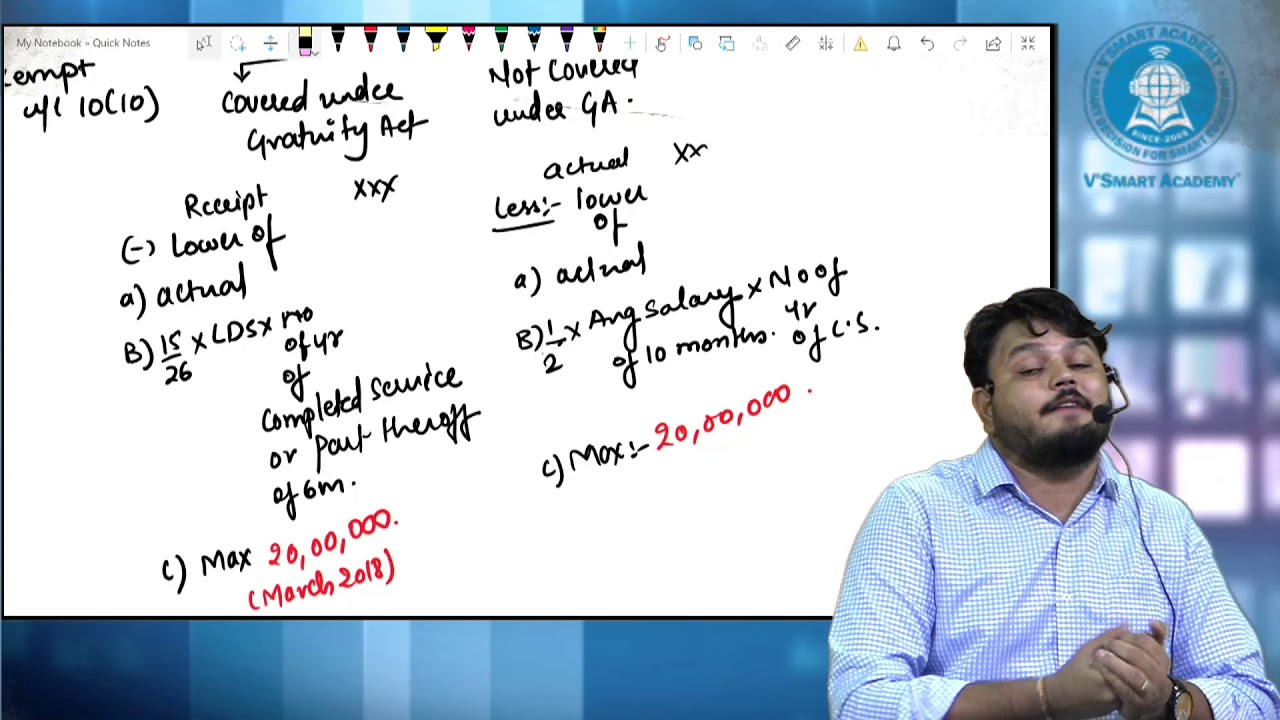 My Notebook » Quick Notes
u/s 10(10)
Covered under
Gratuity Act
Receipt XXX
(-) Lower of
a) actual
B) 15/26 x LDS x no
of yr
of
completed service
or part theroff
of 6m.
C) Max 20,00,000.
(March 2018)
Not Covered
under GA.
actual XX
Less:- lower
of
a) actual
B) 1/2 x Avg Salary x No of
yr
of 10 months. of C.S.
C) Max:- 20,00,000.
V'SMART ACADEMY
SINCE-2005
V'SMART ACADEMY